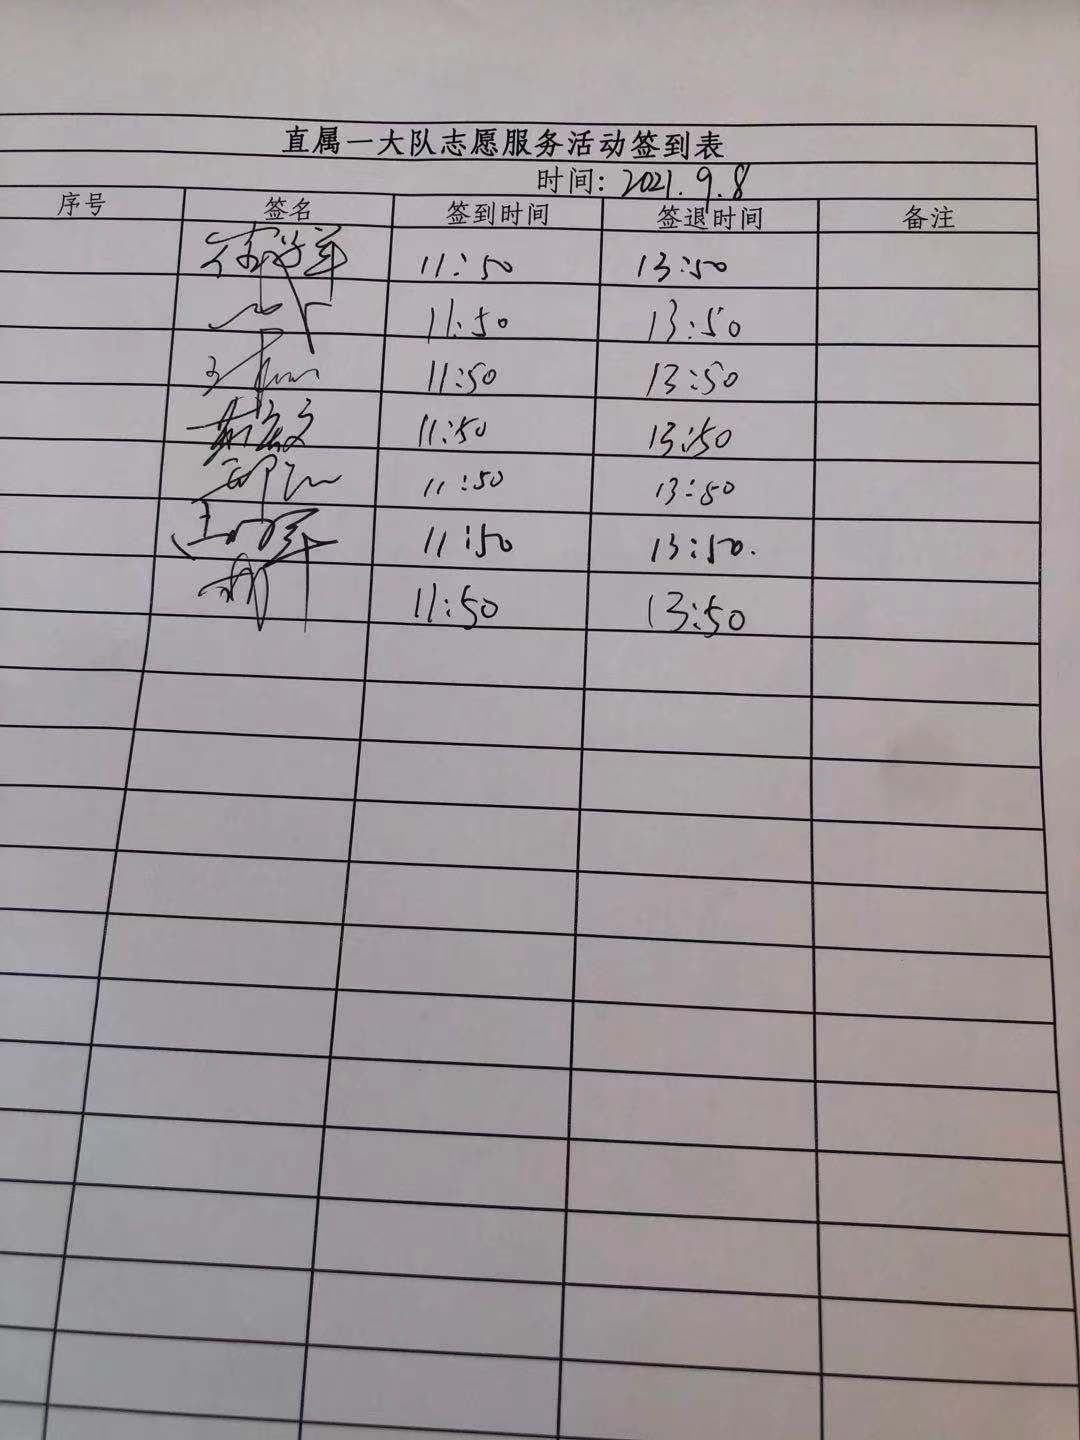 直属一大队志愿服务活动签到表
时间: 2021.9.8
序号 签名 签到时间 签退时间 备注
11:50 13:50
11:50 13:50
11:50 13:50
11:50 13:50
11:50 13:50
11:50 13:50.
11:50 13:50